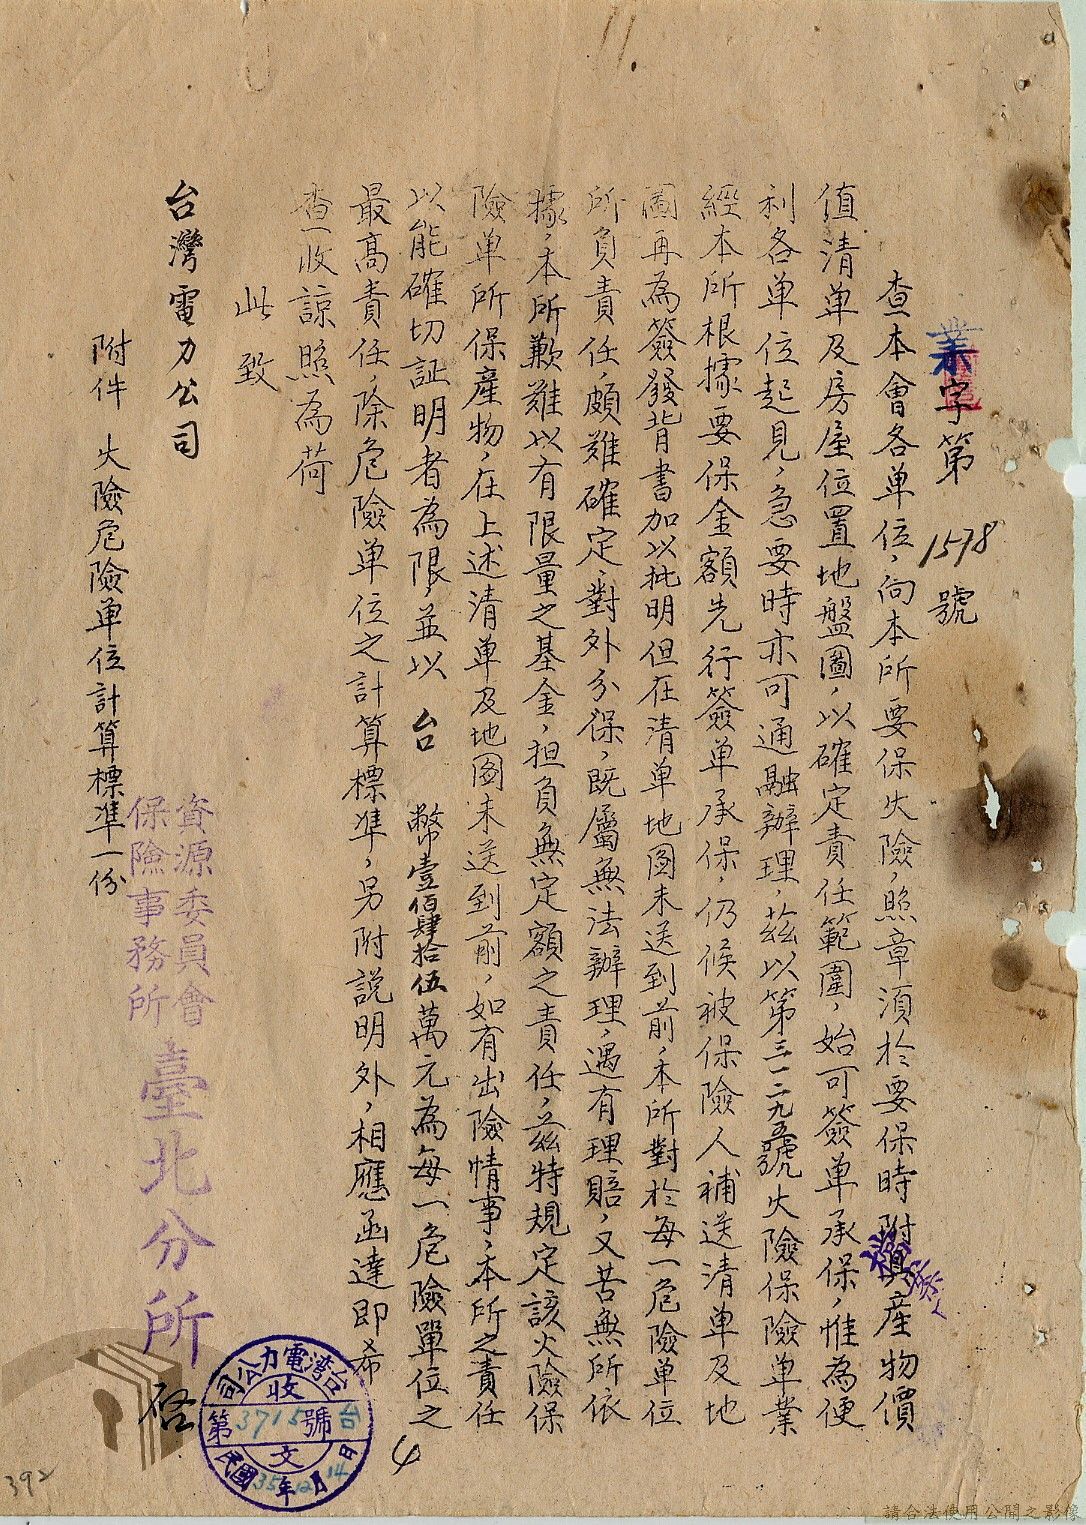 業字第1578號
查本會各单位，向本所要保火險，照章須於要保時附具產物價
值清单及房屋位置地盤圖，以確定責任範圍，始可簽单承保，惟為便
利各单位起見，急要時亦可通融辦理，茲以第三一二九五號火險保險单業
經本所根據要保金額先行簽单承保，仍候被保險人補送清单及地
圖再為簽發背書加以批明但在清单地图未送到前，本所對於每一危險单位
所負責任，頗難確定，對外分保，既屬無法辦理，遇有理賠，又苦無所依
據，本所歉難以有限量之基金，担負無定額之責任，茲特規定該火險保
險单所保產物，在上述清单及地图未送到前，如有出險情事，本所之責任
以能確切証明者為限，並以台幣壹佰肆拾伍萬元為每一危險單位之
最高責任，除危險单位之計算標準，另附説明外，相應函達即希
查收諒照為荷
此致
台灣電力公司
附件 火險危險单位計算標準一份
資源委員會
保險事務所
臺北分所
啓
台湾電力公司
收文
第3715號
台
民國35年12月14日
392
請合法使用公開之影像